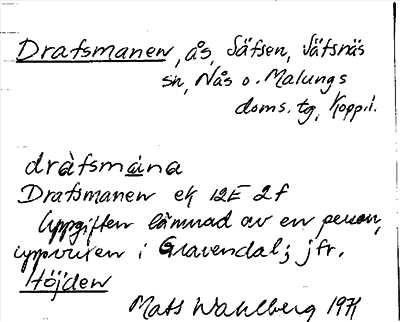 Drafsmanen, ås, Säfsen, Säfsnäs
sn, Nås o. Malungs
doms. tg, Kopp.l.
dràfsmàna
Drafsmanen ek 12E 2f
Uppgiften lämnad av en person,
uppvuxen i Gravendal; jfr.
Höjden
Mats Wahlberg 1971